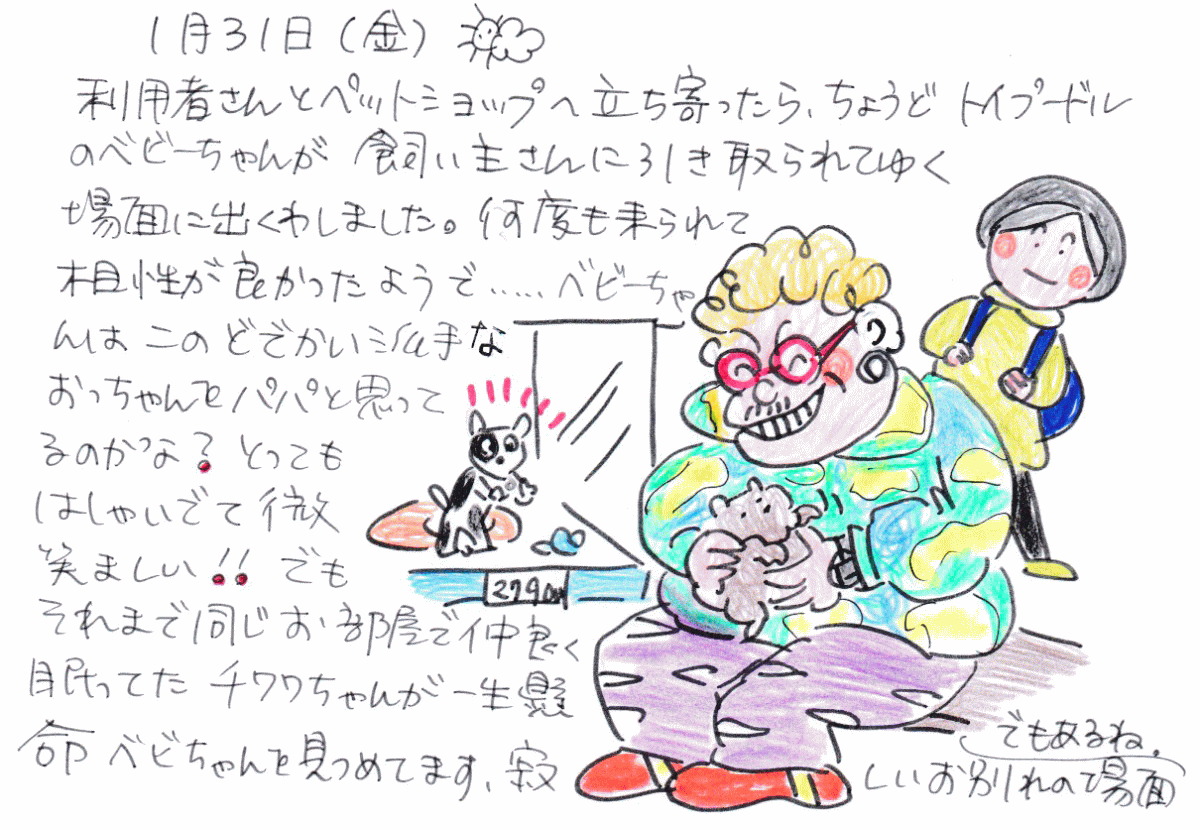 1月31日(金)
利用者さんとペットショップへ立ち寄ったら、ちょうど トイプードル
のベビーちゃんが 飼い主さんに引き取られてゆく
場面に出くわしました。何度も来られて
相性が良かったようで‥‥‥ベビーちゃ
んは このどでかい派手な
おっちゃんをパパと思って
るのかな?とっても
はしゃいでて微
笑ましい!!でも
それまで同じお部屋で仲良く
眠ってた チワワちゃんが一生懸
命 ベビちゃんを見つめてます、寂
しいお別れの場面
でもあるね.